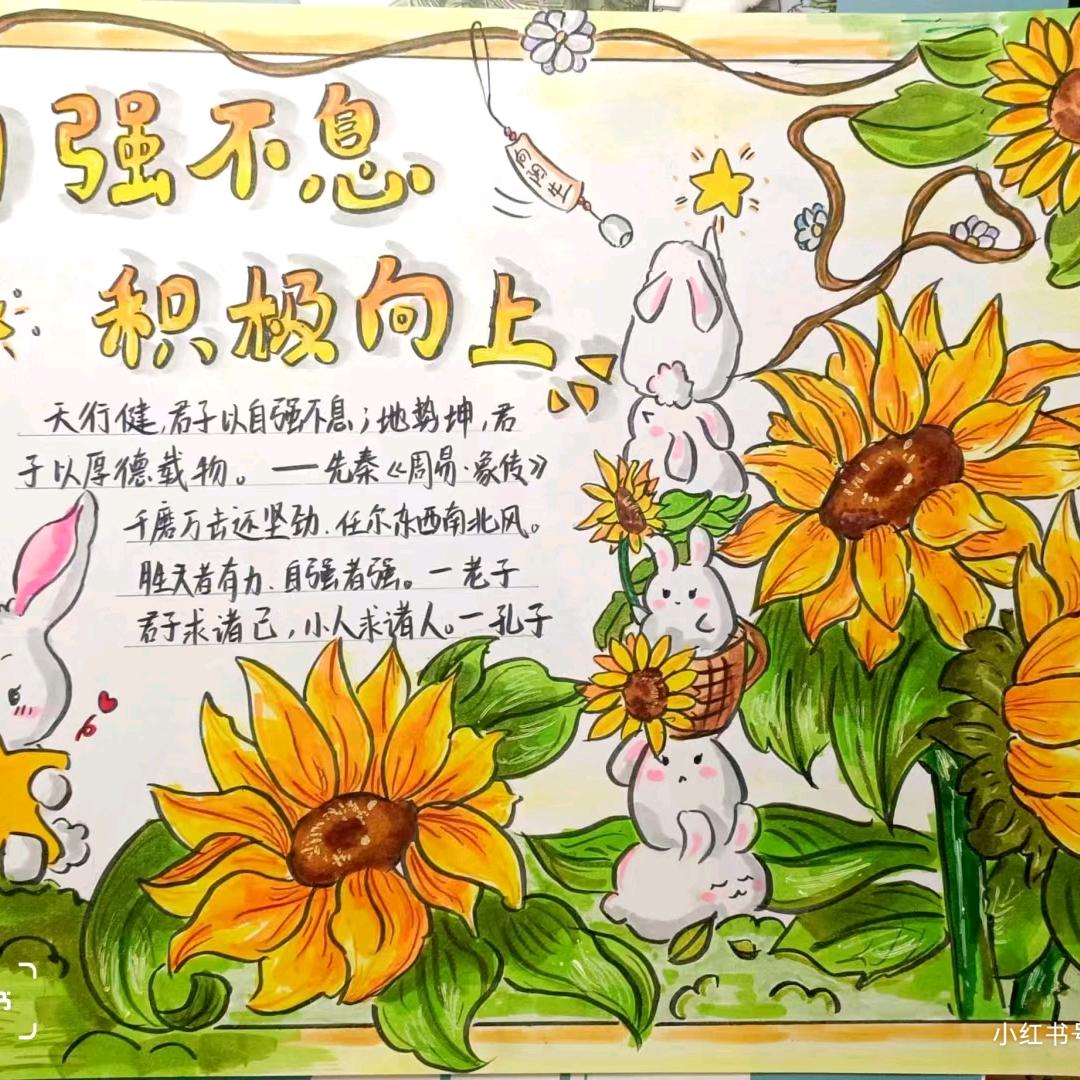 自强不息
向阳生
积极向上
天行健,君子以自强不息;地势坤,君
子以厚德载物。——先秦《周易·象传》
千磨万击还坚劲.任尔东西南北风。
胜人者有力.自强者强。一老子
君子求诸己,小人求诸人。一孔子
书
小红书号